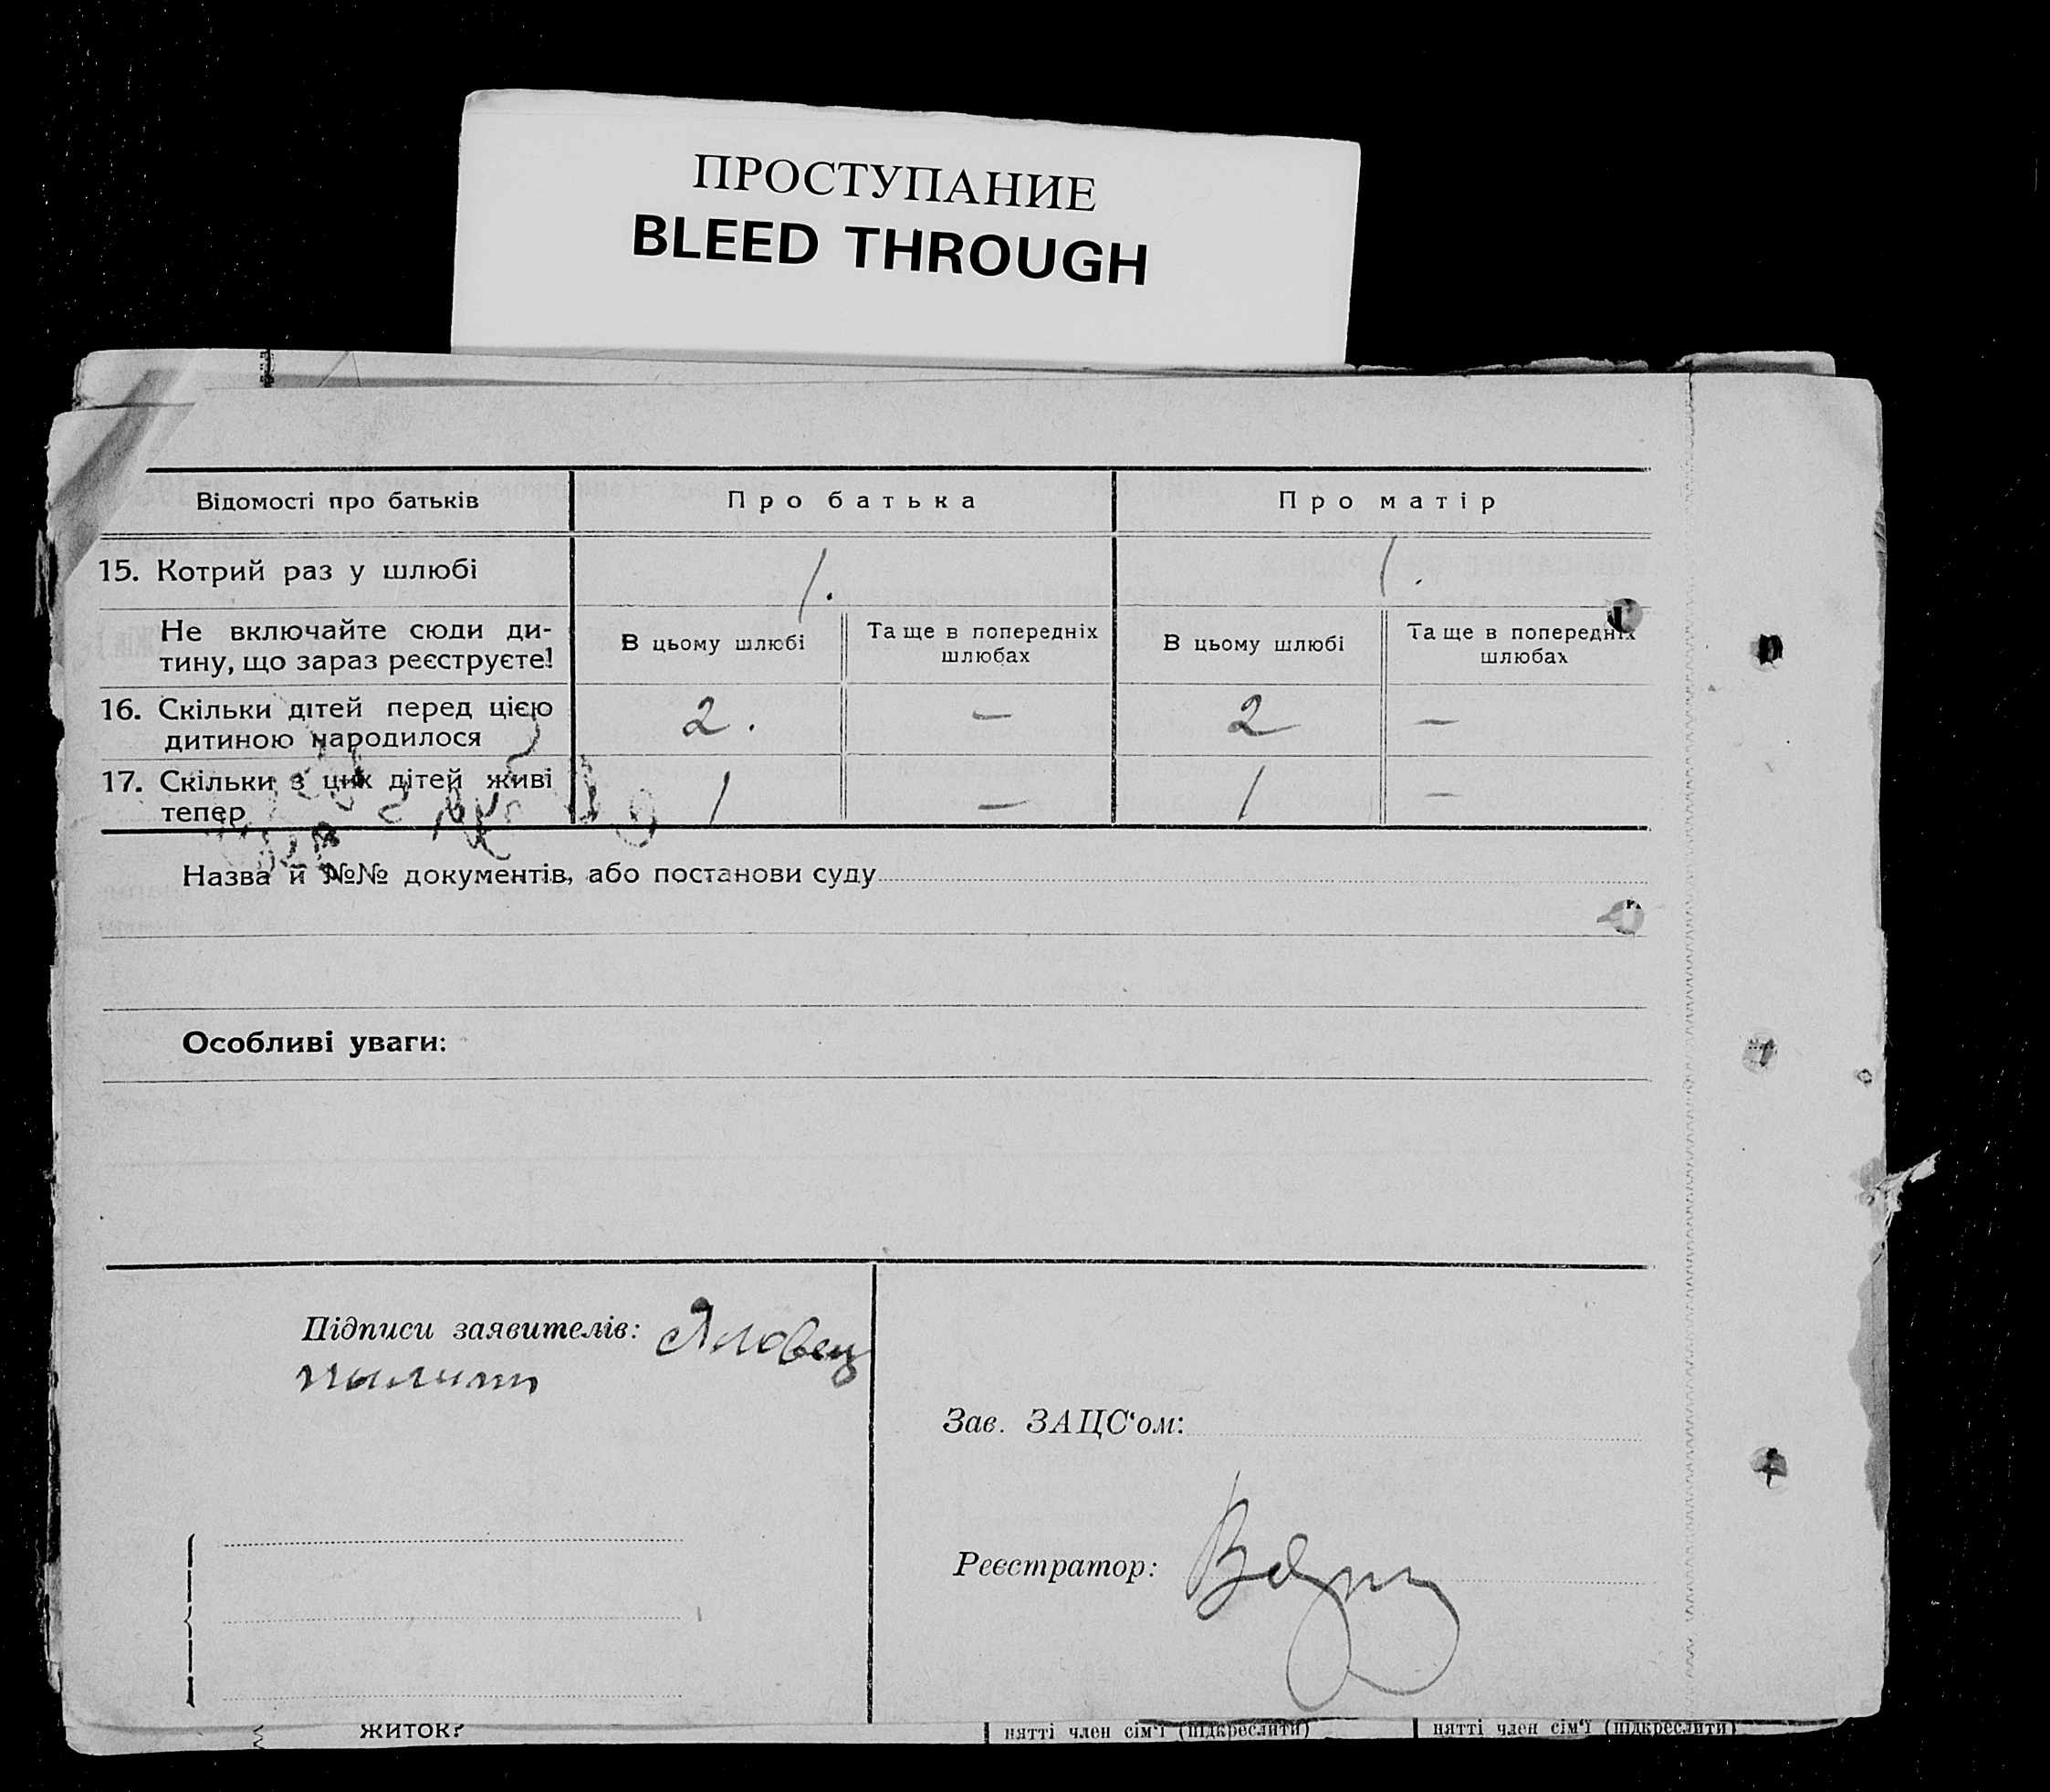 ПРОСТУПАНИЕ
BLEED THROUGH
Відомості про батьків
Про батька
Про матір
15. Котрий раз у шлюбі
1.
1.
Не включайте сюди ди-
тину, що зараз реєструєте!
В цьому шлюбі
Та ще в попередніх
шлюбах
В цьому шлюбі
Та ще в попередніх
шлюбах
16. Скільки дітей перед цією
дитиною народилося
2.
—
2
—
17. Скільки з цих дітей живі
тепер
1
—
1
—
Назва й №№ документів, або постанови суду
Особливі уваги:
Підписи заявителів: Яловец
Зав. ЗАЦС‘ом:
Реєстратор:
житок?
нятті член сім‘ї (підкреслити)
нятті член сім‘ї (підкреслити)